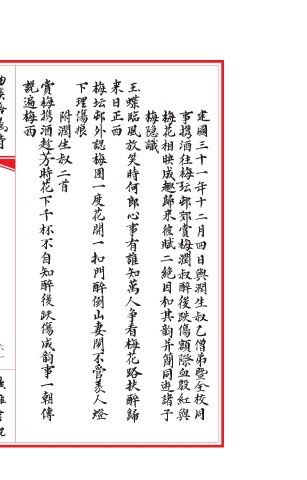 建國三十一年十二月四日與潤生叔乙僧弟暨全校同
事攜酒往梅坛邨郊賞梅潤叔醉後跌傷額際血殷紅與
梅花相映成趣歸來後賦二絕因和其韵并簡同遊諸子
梅隐識
玉蝶临風放笑時何郎心事有誰知萬人争看梅花路扶醉歸
来日正西
梅坛邨外認梅園一度花開一扣門醉倒山妻閒不管羡人燈
下理傷痕
附潤生叔二首
賞梅攜酒趁芳時花下千杯不自知醉後跌傷成韵事一朝傳
說遍梅西